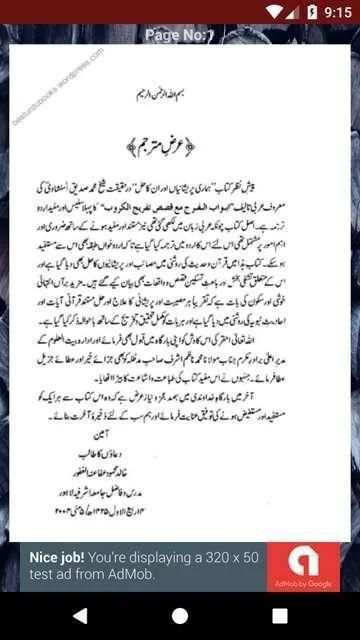 9:15
Page No:1
besturdubooks.wordpress.com
بسم اللہ الرحمٰن الرحیم
﴿عرض مترجم﴾
پیش نظر کتاب "ہماری پریشانیاں اور ان کا حل" درحقیقت شیخ محمد صدیق المنشاوی کی
معروف عربی تالیف "ابواب الفرج مع قصص تفریج الکروب" کا پہلا سلیس اور مفید اردو
ترجمہ ہے۔ اصل کتاب چونکہ عربی زبان میں لکھی گئی تھی نیز مستند اور مفید ہونے کے ساتھ ضروری اور
اہم امور پر مشتمل تھی اس لئے اس کا اردو میں ترجمہ کیا گیا ہے تاکہ اردو خواں طبقہ بھی اس سے مستفید
ہو سکے۔ کتاب ہذا میں قرآن و حدیث کی روشنی میں مصائب اور پریشانیوں کا حل بھی دیا گیا ہے اور
اس کے متعلق تشفی بخش اور باعث تسکین قصص و واقعات بھی بیان کیے گئے ہیں۔ مزید برآں انتہائی
خوشی اور سکون کی بات ہے کہ تقریباً ہر مصیبت اور پریشانی کا علاج اور حل مستند قرآنی آیات اور
احادیث نبویہ کی روشنی میں دیا گیا ہے اور ہر بات کو مکمل تحقیق و تخریج کے ساتھ باحوالہ ذکر کیا گیا ہے۔
اللہ تعالیٰ احقر کی اس کاوش کو اپنی بارگاہ میں قبول فرمائے اور ادارہ بیت العلوم کے
مدیر اعلیٰ برادر مکرم جناب مولانا محمد ناظم اشرف صاحب مدظلہ کو بھی جزائے خیر اور عطائے جزیل
عطا فرمائے۔ جنہوں نے اس مفید کتاب کی طباعت و اشاعت کا بیڑا اٹھایا۔
آخر میں بارگاہ خداوندی میں بصد عجز و نیاز عرض ہے کہ وہ اس کتاب سے ہر ایک کو
مستفید اور مستفیض ہونے کی توفیق عنایت فرمائے اور ہم سب کے لئے ذخیرۂ آخرت بنائے۔
آمین
دعاؤں کا طالب
خالد محمود عفا عنہ الغفور
مدرس و فاضل جامعہ اشرفیہ لاہور
۱۴ ربیع الاول ۱۴۲۵ھ / ۵ مئی ۲۰۰۴ء
Nice job! You're displaying a 320 x 50
test ad from AdMob.
AdMob by Google